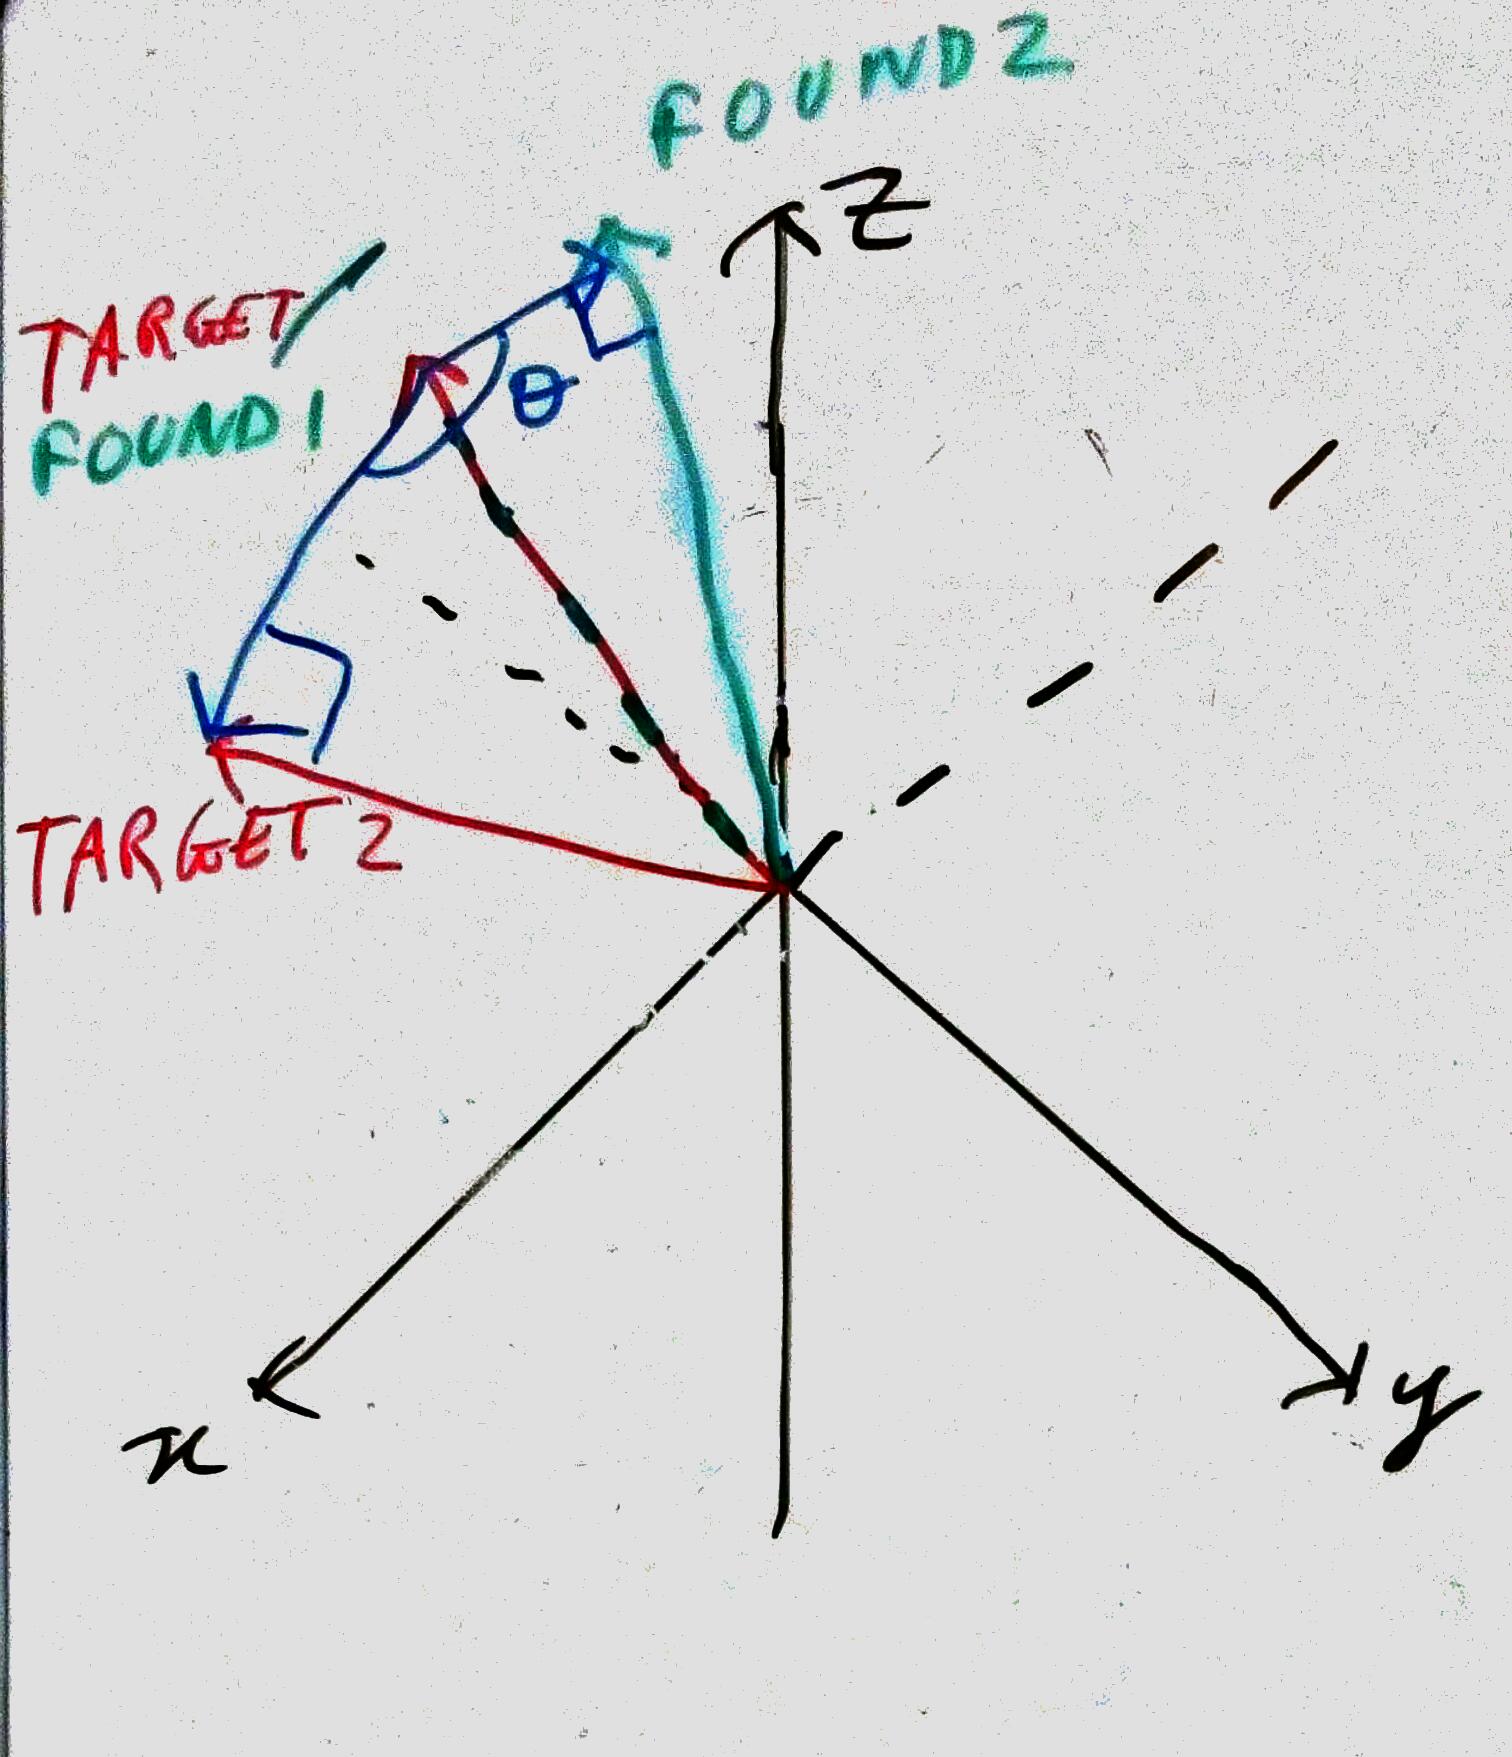 FOUND 2
z
TARGET/
FOUND 1
θ
TARGET 2
x
y